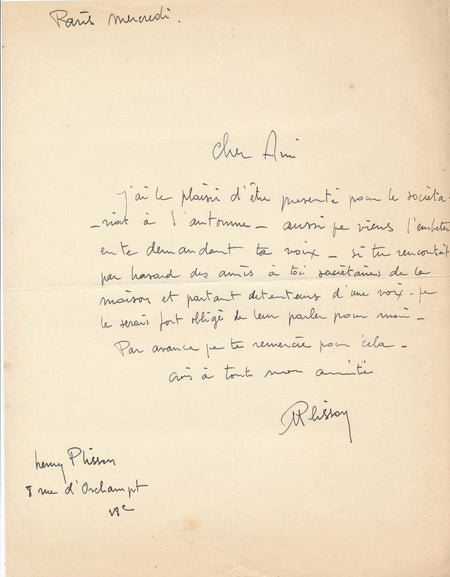 Paris mercredi.
Cher Ami
j'ai le plaisir d'être presenté pour le sociéta-
-riat à l'automne - aussi je viens t'embêter
en te demandant ta voix - si tu rencontrait
par hasard des amis à toi sociétaires de la
maison et partant detenteurs d'une voix. je
te serais fort obligé de leur parler pour moi -
Par avance je te remercie pour cela -
crois à toute mon amitié
HPlisson
henry Plisson
8 rue d'Orchampt